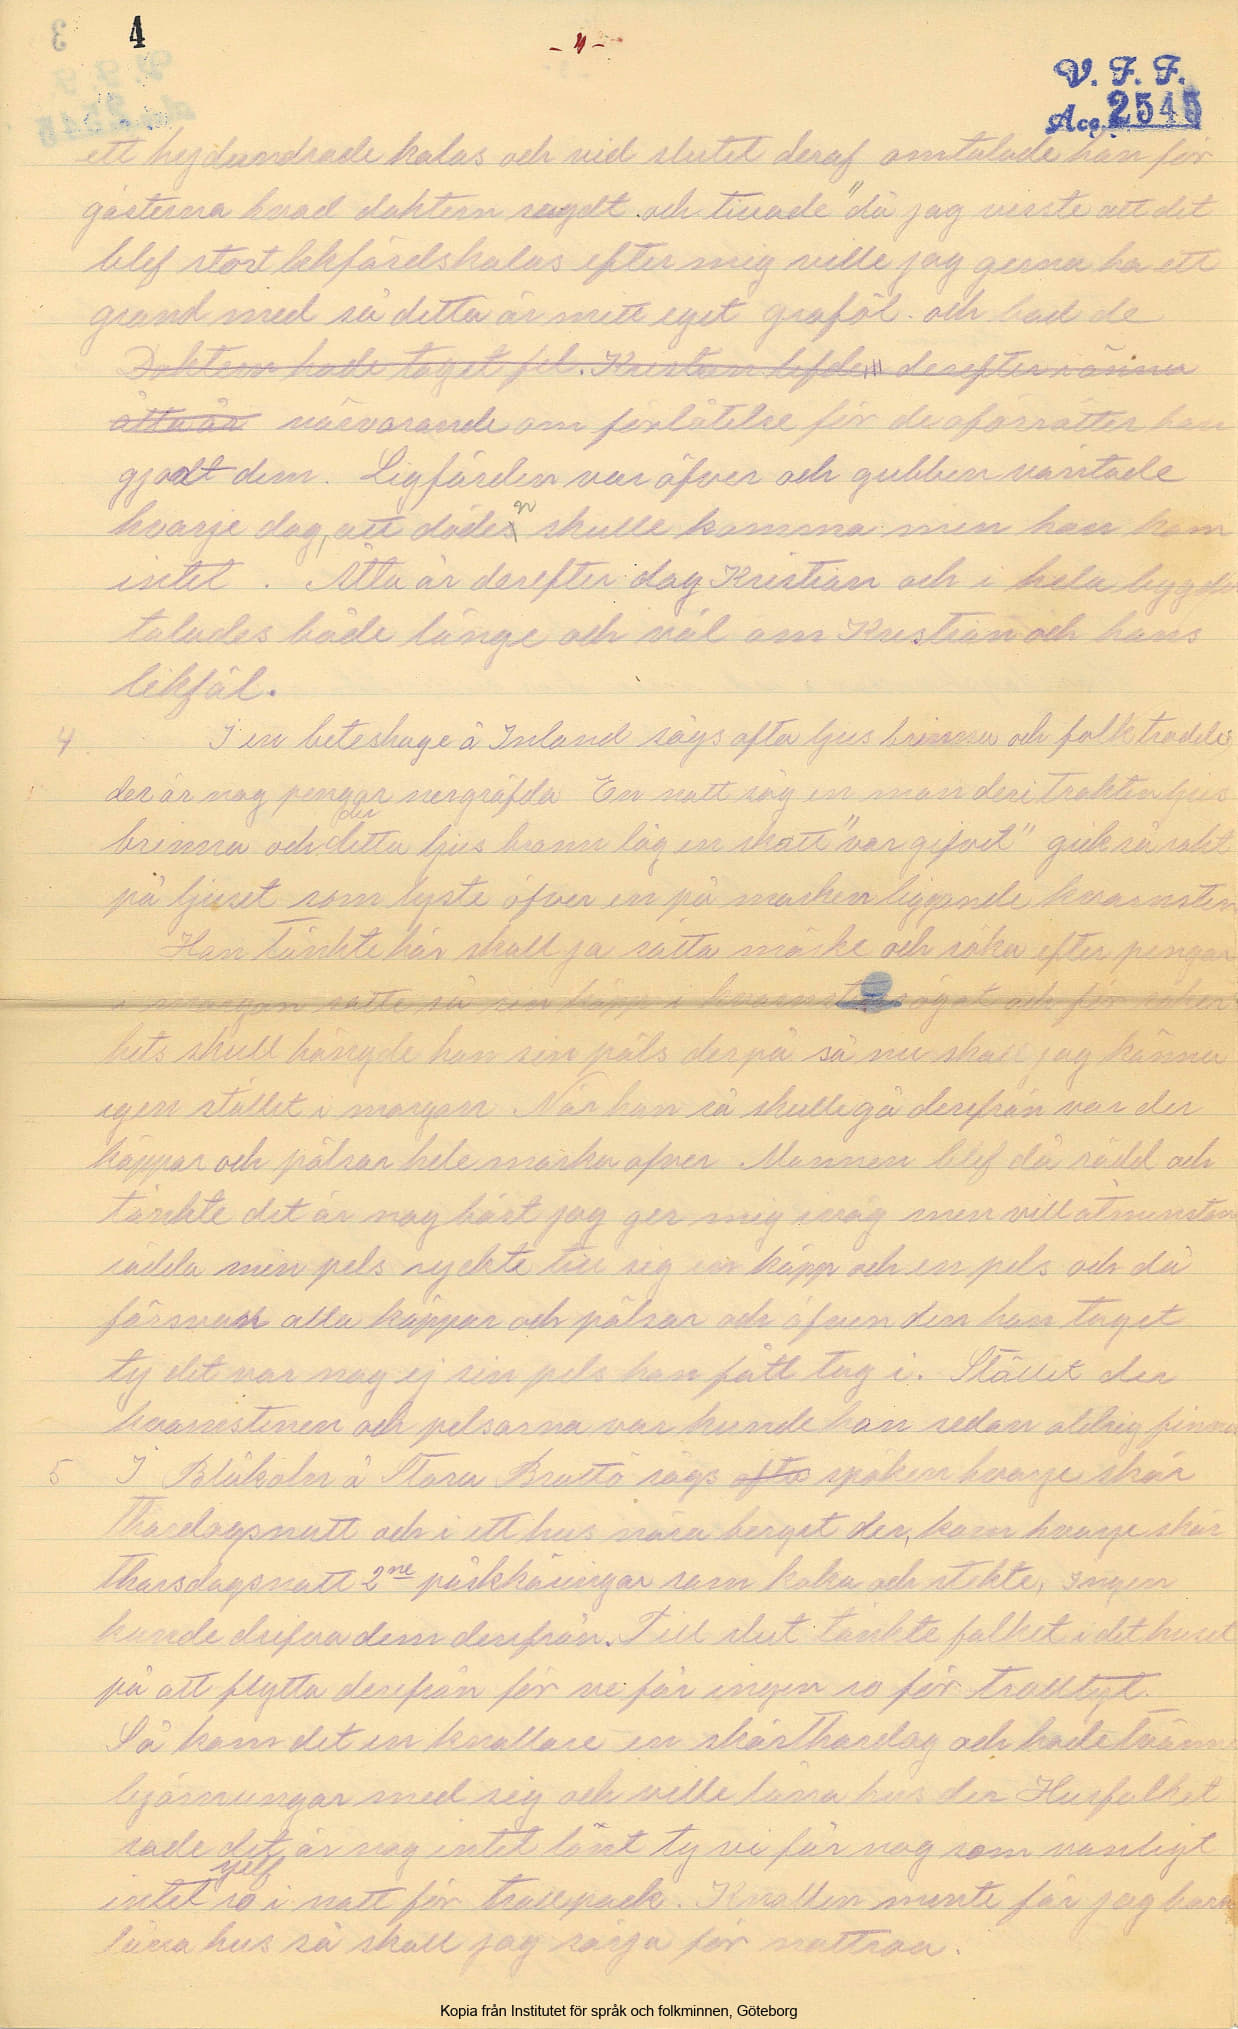 4
- 4 -
V. F. F.
Acq. 2545
ett hejdundrade kalas och vid slutet deraf omtalade han för
gästerna hvad doktern sagdt och tillade "då jag visste att det
blef stort likfärdskalas efter mig ville jag gerna ha ett
grand med så detta är mitt eget graföl. och bad de
Doktern hade taget fel. Kristian lefde derefter
åtta år närvarande om förlåtelse för de oförrätter han
gjort dem. Ligfärden var öfver och gubben väntade
hvarje dag, att döden skulle komma men han kom
intet. Åtta år derefter dog Kristian och i hela bygden
talades både länge och väl om Kristian och hans
liköl.
4 I en beteshage å Inland sågs ofta ljus brinna och folk trodde,
der är nog pengar nergräfda En natt såg en man der i trakten ljus
brinna och der detta ljus brann låg en skatt "var gifvet" gick så rakt
på ljuset som lyste öfver en på marken liggande kvarnsten
Han tänkte här skall ja sätta märke och söka efter pengar
i morgon satte så sin käpp i kvarnstensögat och för säker-
hets skull hängde han sin päls derpå så nu skall jag känna
igen stället i morgon. När han så skulle gå derefrån var der
käppar och pälsar hele marka öfver. Mannen blef då rädd och
tänkte det är nog bäst jag ger mig iväg men vill åtminstone
rädda min pels ryckte till sig en käpp och en pels och då
försvan alla käppar och pälsar och äfven den han taget
ty det var nog ej sin pels han fått tag i. Stället der
kvarnstenen och pelsarna var kunde han sedan aldrig finna
5 I Blåkolm å Stora Brattö sågs ofta spöken hvarje skär
thordagsnatt och i ett hus nära berget der, kom hvarje skär
thorsdagsnatt 2ne påskkäringar som koka och stekte, Ingen
kunde drifva dem derefrån. Till slut tänkte folket i det huset
på att flytta derefrån för vi får ingen ro för trolltyt.
Så kom det en knallare en skärthordag och hade tvänne
björnungar med sig och ville låna hus der Husfolket
sade det är nog intet lönt ty vi får nog som vanligt
intet sjelf ro i natt för trollpack. Knallen mente får jag bara
låna hus så skall jag sörja för nattron.
Kopia från Institutet för språk och folkminnen, Göteborg